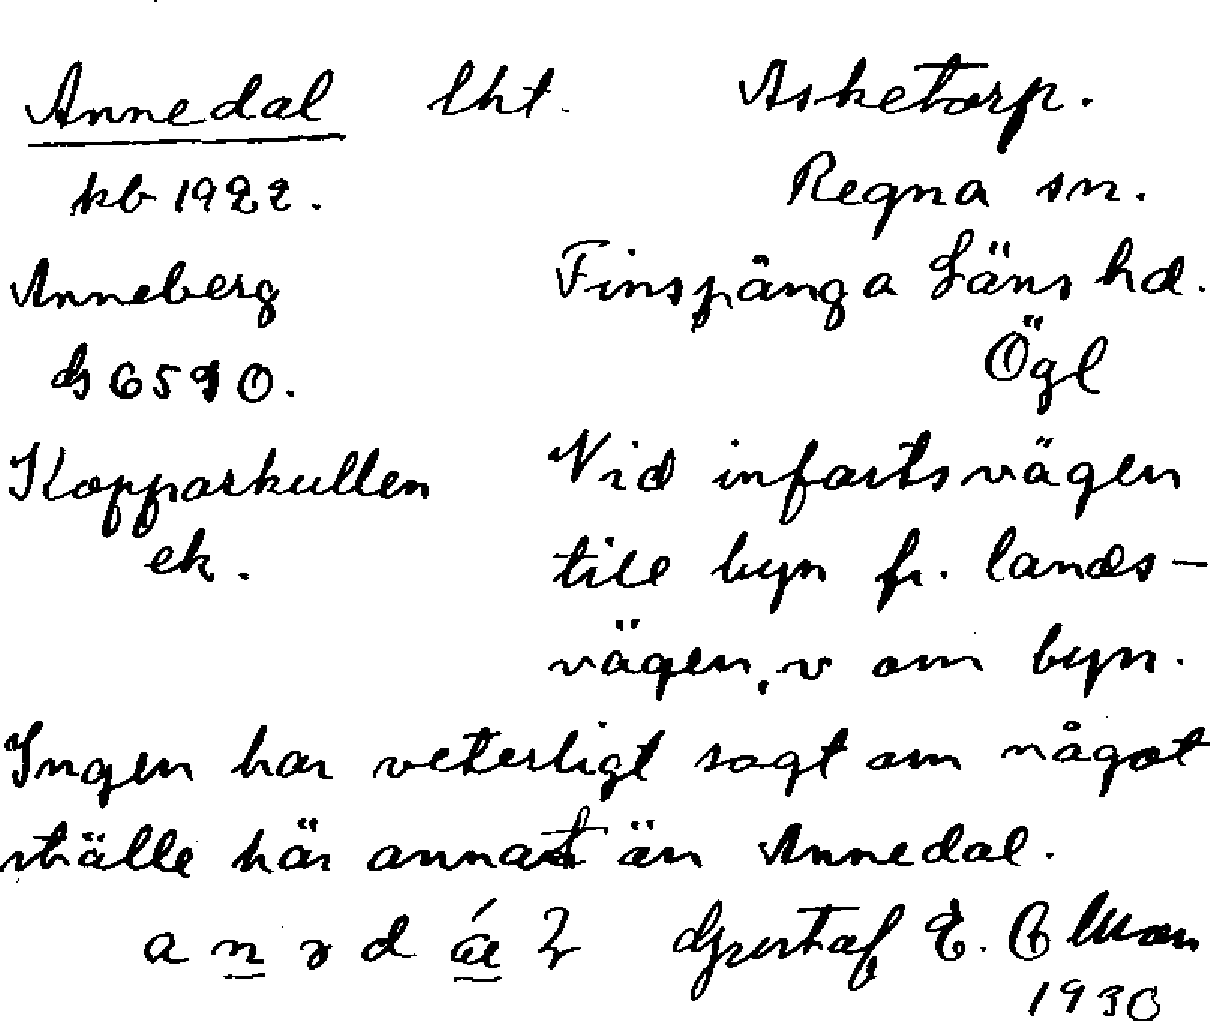 Annedal lht. Asketorp.
kb 1922. Regna sn.
Anneberg Finspånga Läns hd.
G 6590. Ögl
Kopparkullen Vid infartsvägen
ek. till byn fr. lands-
vägen, v om byn.
Ingen har veterligt sagt om något
ställe här annat än Annedal.
a n d Gustaf E.
1930